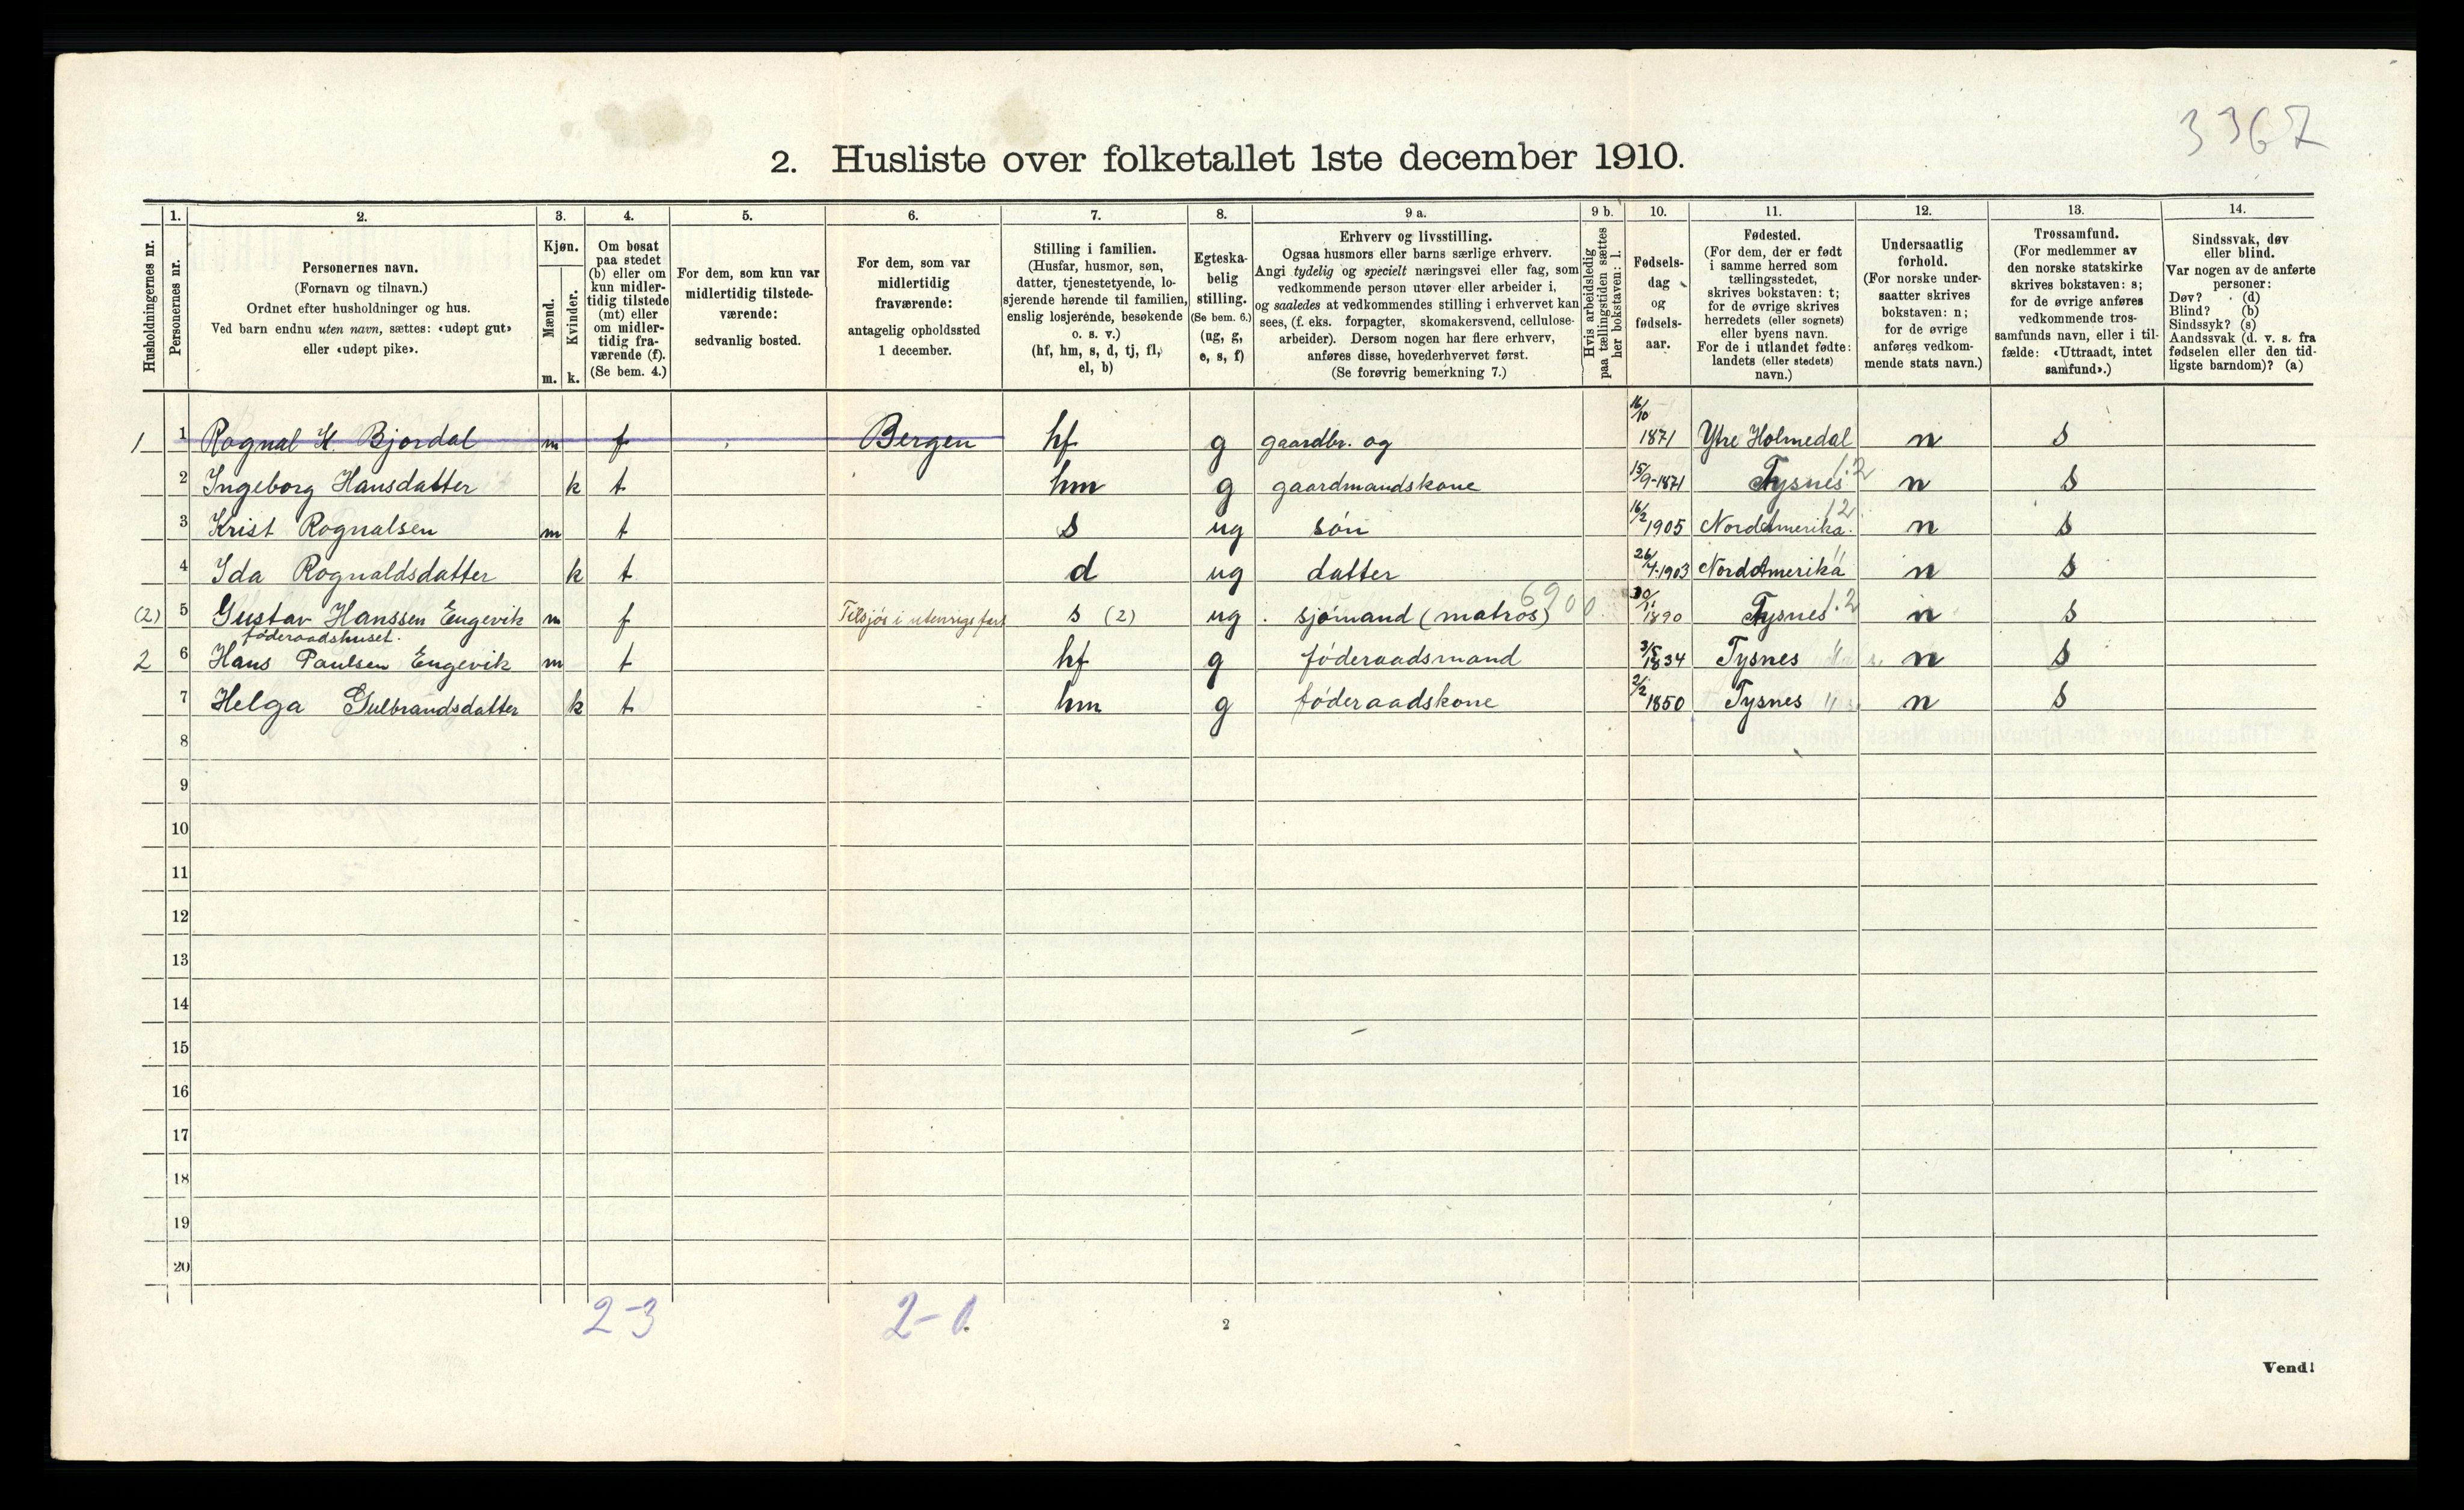 3367
2. Husliste over folketallet 1ste december 1910.
Husholdningernes nr.
1. Personernes nr.
2. Personernes navn.
(Fornavn og tilnavn.)
Ordnet efter husholdninger og hus.
Ved barn endnu uten navn, sættes: «udøpt gut»
eller «udøpt pike».
3. Kjøn.
Mænd. Kvinder.
m. k.
4. Om bosat
paa stedet
(b) eller om
kun midler-
tidig tilstede
(mt) eller
om midler-
tidig fra-
værende (f).
(Se bem. 4.)
5. For dem, som kun var
midlertidig tilstede-
værende:
sedvanlig bosted.
6. For dem, som var
midlertidig
fraværende:
antagelig opholdssted
1 december.
7. Stilling i familien.
(Husfar, husmor, søn,
datter, tjenestetyende, lo-
sjerende hørende til familien,
enslig losjerende, besøkende
o. s. v.)
(hf, hm, s, d, tj, fl,
el, b)
8. Egteska-
belig
stilling.
(Se bem. 6.)
(ug, g,
e, s, f)
9 a. Erhverv og livsstilling.
Ogsaa husmors eller barns særlige erhverv.
Angi tydelig og specielt næringsvei eller fag, som
vedkommende person utøver eller arbeider i,
og saaledes at vedkommendes stilling i erhvervet kan
sees, (f. eks. forpagter, skomakersvend, cellulose-
arbeider). Dersom nogen har flere erhverv,
anføres disse, hovederhvervet først.
(Se forøvrig bemerkning 7.)
9 b. Hvis arbeidsledig
paa tællingstiden sættes
her bokstaven: l.
10. Fødsels-
dag
og
fødsels-
aar.
11. Fødested.
(For dem, der er født
i samme herred som
tællingsstedet,
skrives bokstaven: t;
for de øvrige skrives
herredets (eller sognets)
eller byens navn.
For de i utlandet fødte:
landets (eller stedets)
navn.)
12. Undersaatlig
forhold.
(For norske under-
saatter skrives
bokstaven: n;
for de øvrige
anføres vedkom-
mende stats navn.)
13. Trossamfund.
(For medlemmer av
den norske statskirke
skrives bokstaven: s;
for de øvrige anføres
vedkommende tros-
samfunds navn, eller i til-
fælde: «Uttraadt, intet
samfund».)
14. Sindssvak, døv
eller blind.
Var nogen av de anførte
personer:
Døv? (d)
Blind? (b)
Sindssyk? (s)
Aandssvak (d. v. s. fra
fødselen eller den tid-
ligste barndom)? (a)
1 1 Rognal K. Bjordal m f Bergen hf g gaardbr. og 16/10 1871 Ytre Holmedal n s
2 Ingeborg Hansdatter k t hm g gaardmandskone 15/9-1871 Tysnes 12 n s
3 Krist Rognalsen m t s ug søn 16/2 1905 NordAmerika 12 n s
4 Ida Rognaldsdatter k t d ug datter 26/7-1903 NordAmerika " n s
(2) 5 Gustav Hanssen Engevik m f Tilsjøs i utenrigs fart s (2) ug sjømand (matros) 6900 30/11 1890 Tysnes 12 n s
føderaadshuset.
2 6 Hans Paulsen Engevik m t hf g føderaadsmand 3/5 1834 Tysnes " n s
7 Helga Gulbrandsdatter k t hm g føderaadskone 2/2 1850 Tysnes " n s
8
9
10
11
12
13
14
15
16
17
18
19
20
2-3 2-0
2
Vend!